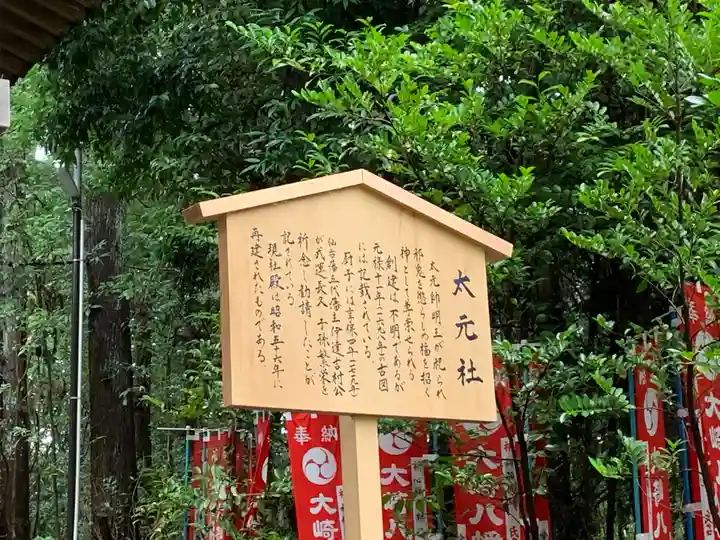 太元社
太元帥明王が祀られ
邪鬼を懲らしめ福を招く
神として崇せられる
創建は不明であるが
元禄十年(一六九七年)の古図
には記載されている。
厨子には享保四年(一七一九年)
仙台藩五代藩主伊達吉村公
が武運長久、子孫繁栄を
祈念し勧請したことが
記されている。
現社殿は昭和五十六年に
再建されたものである。
奉
大崎
大
八幡
大崎
八